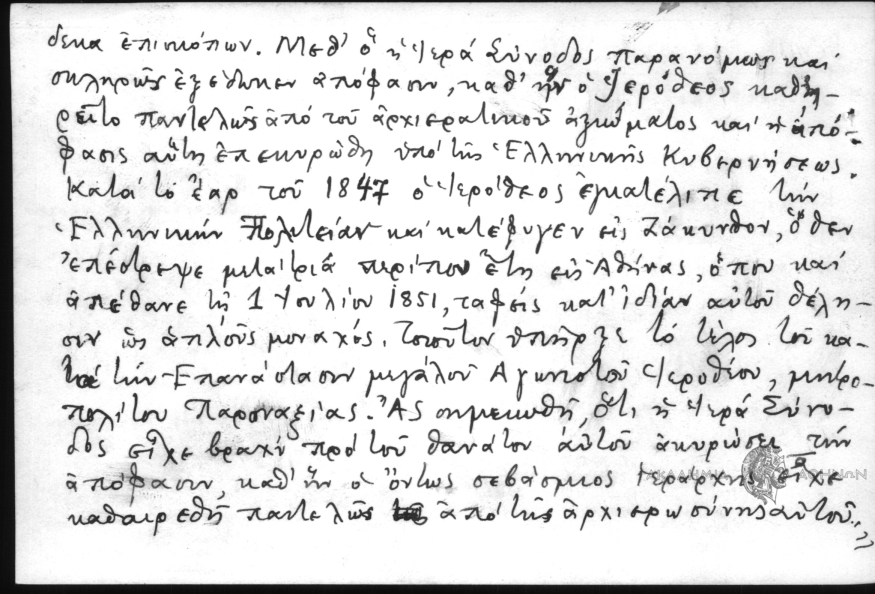 δεκα ἐπισκόπων. Μεθ' ὃ ἡ Ἱερά Σύνοδος παρανόμως καί
σκληρῶς ἐξέδωκεν ἀπόφασιν, καθ' ἥν ὁ Ἱερόθεος καθῃ-
ρεῖτο παντελῶς ἀπό τοῦ ἀρχιερατικοῦ ἀξιώματος καί ἡ ἀπό-
φασις αὕτη ἐπεκυρώθη ὑπό τῆς Ἑλληνικῆς Κυβερνήσεως.
Κατά τό ἔαρ τοῦ 1847 ὁ Ἱερόθεος ἐγκατέλιπε τήν
Ἑλληνικήν Πολιτείαν καί κατέφυγεν εἰς Ζάκυνθον, ὅθεν
ἐπέστρεψε μετά τρία περίπου ἔτη εἰς Ἀθήνας, ὅπου καί
ἀπέθανε τῇ 1 Ἰουλίου 1851, ταφείς κατ' ἰδίαν αὐτοῦ θέλη-
σιν ὡς ἁπλοῦς μοναχός. Τοιοῦτον ὑπῆρξε τό τέλος τοῦ κα-
τά τήν Ἐπανάστασιν μεγάλου Ἀγωνιστοῦ Ἱεροθέου, μητρο-
πολίτου Παροναξίας. Ἄς σημειωθῇ, ὅτι ἡ Ἱερά Σύνο-
δος εἶχε βραχύ πρό τοῦ θανάτου αὐτοῦ ἀκυρώσει τήν
ἀπόφασιν, καθ' ἥν ὁ ὄντως σεβάσμιος Ἱεράρχης εἶχε
καθαιρεθῆ παντελῶς ἀπό τῆς ἀρχιερωσύνης αὐτοῦ."
ΑΚΑΔΗΜΙΑ ΑΘΗΝΩΝ